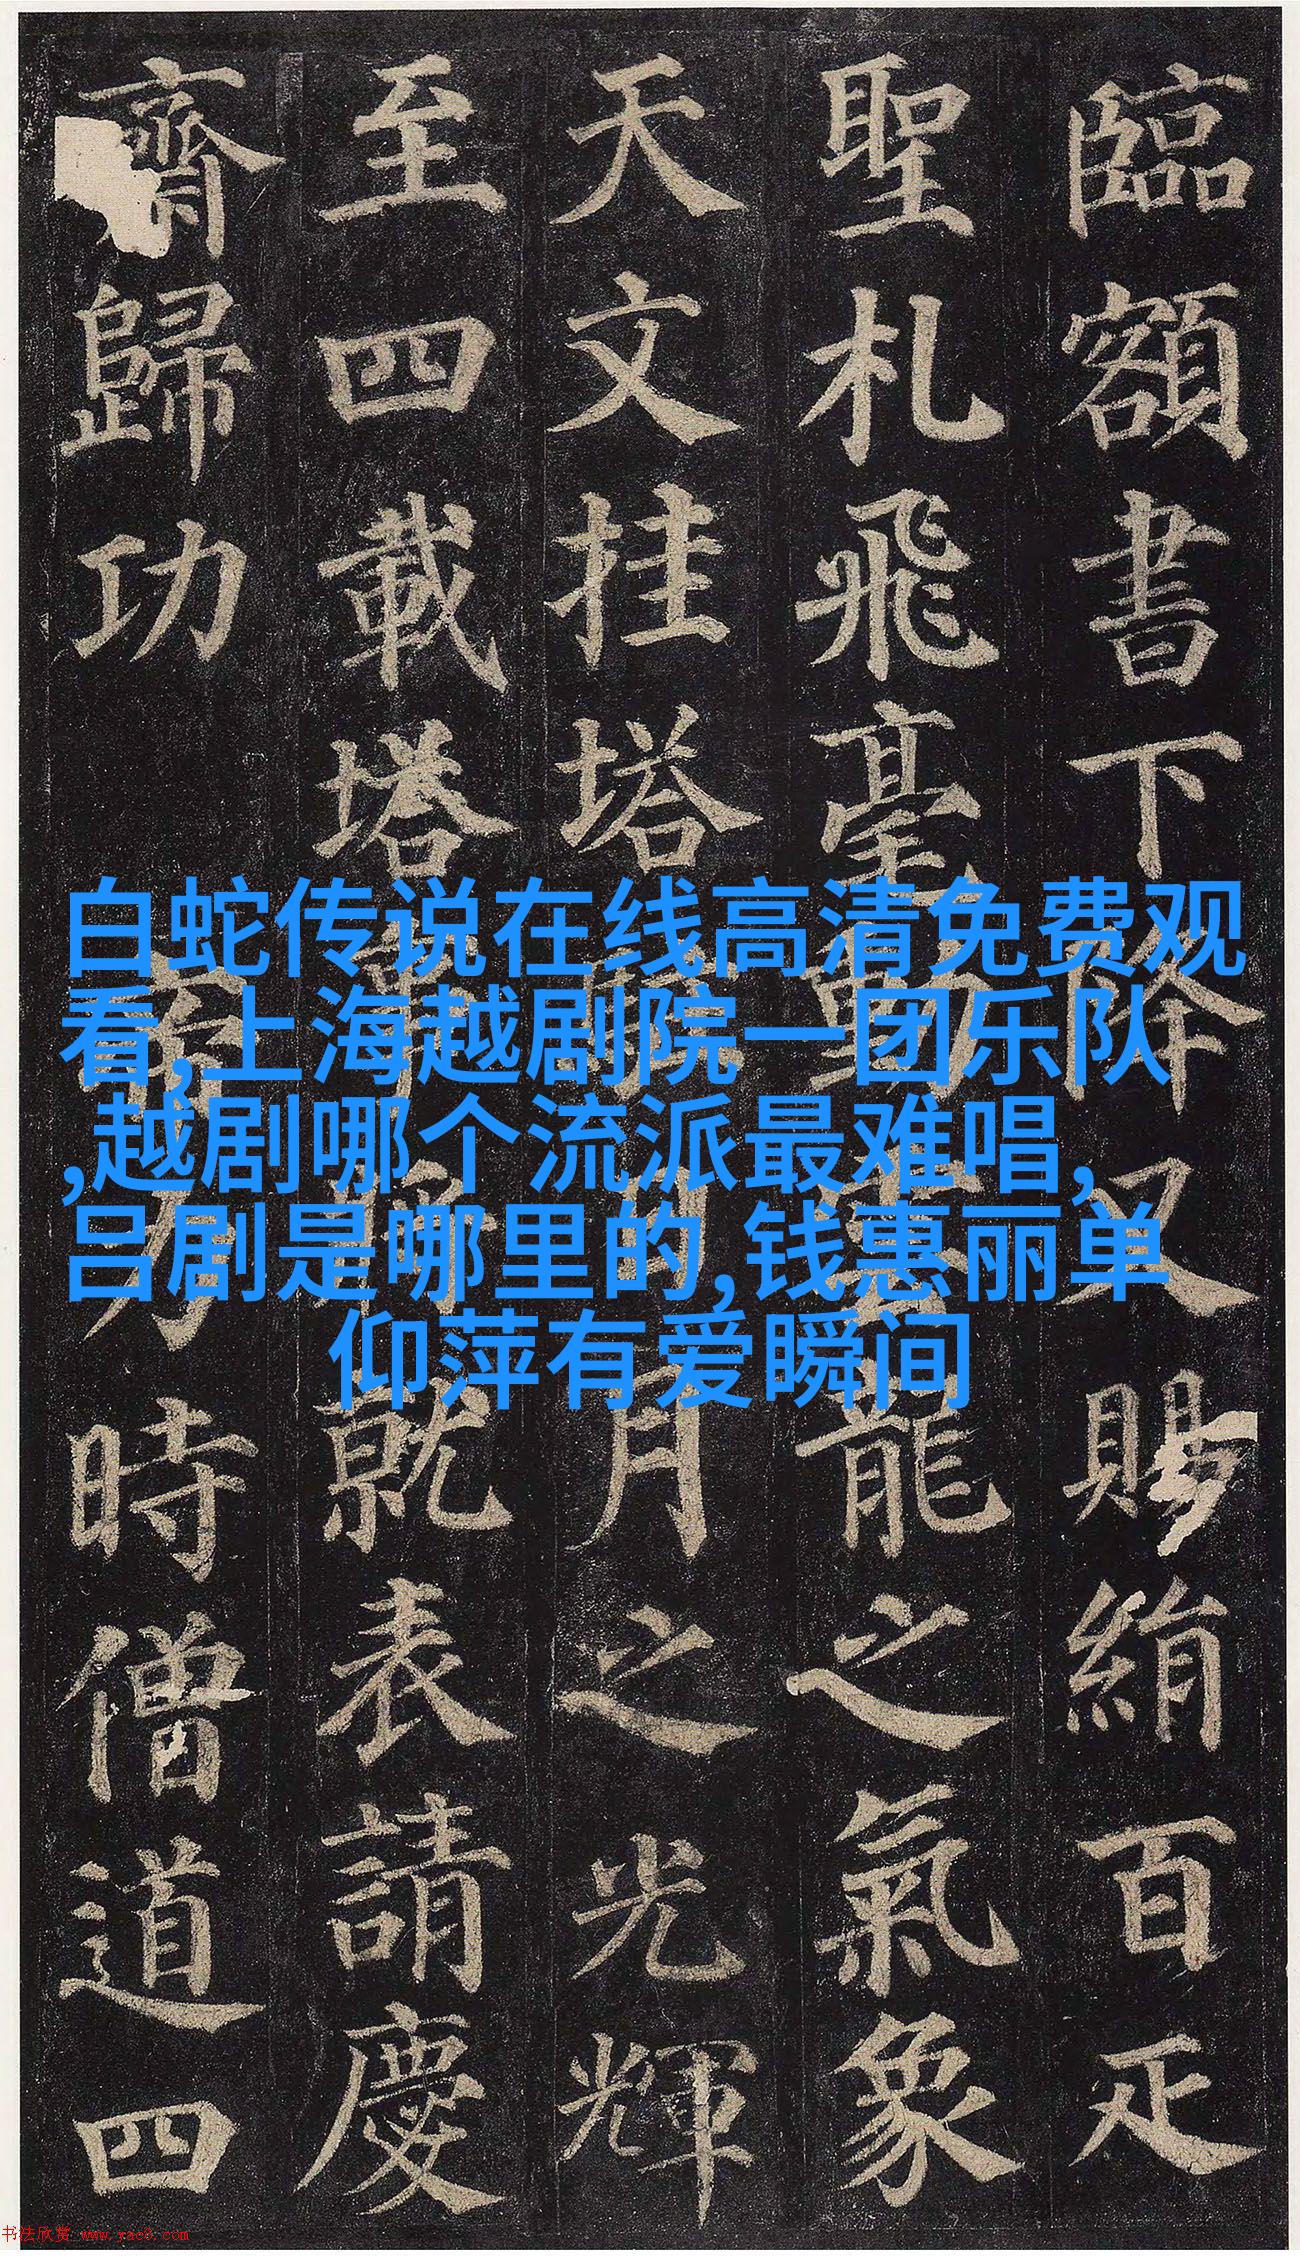 臨額書下降又賜絹百疋
聖札飛毫動龍之氣象
天文挂塔日月之光輝
至四載塔事就表請慶
齋歸功
帝力時僧道四
白蛇传说在线高清免费观
看,上海越剧院一团乐队
,越剧哪个流派最难唱,
吕剧是哪里的,钱惠丽单
仰萍有爱瞬间
书法欣赏 www.yac8.com